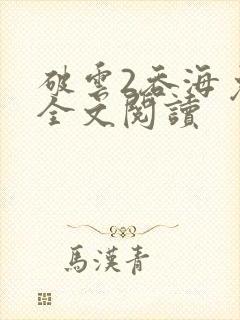 破雲2吞海
全文閱讀
馬漢青